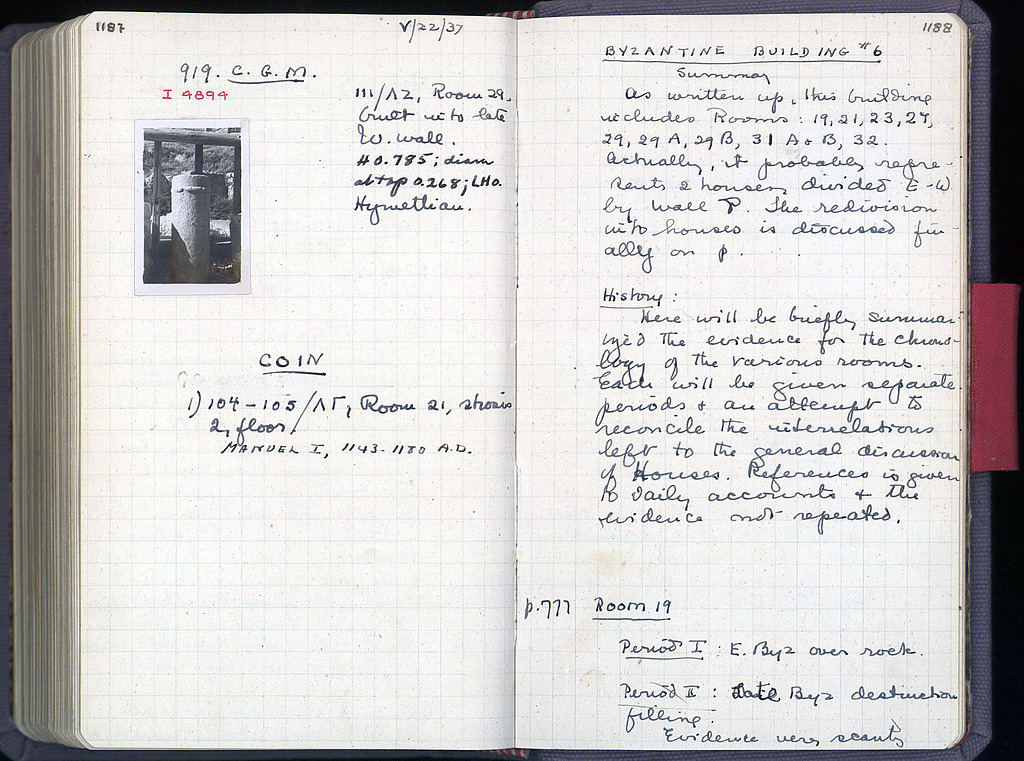 1187
V/22/37
919. C. G. M.
I 4894
111/ΛΖ, Room 29,
built into late
W. wall.
H 0.785; diam
at top 0.268; LH0.
Hymettian.
COIN
1) 104-105/ΛΓ, Room 21, strosis
2, floor.
MANUEL I, 1143-1180 A.D.
1188
BYZANTINE BUILDING #6
Summary
As written up, this building
includes Rooms: 19, 21, 23, 27,
29, 29 A, 29 B, 31 A & B, 32.
Actually, it probably repre-
sents 2 houses, divided E-W
by wall P. The redivision
into houses is discussed fin-
ally on p.
History:
Here will be briefly summar-
ized the evidence for the chron-
ology of the various rooms.
Each will be given separate
periods & an attempt to
reconcile the interrelations
left to the general discussion
of Houses. References is given
to daily accounts & the
evidence not repeated.
p.777 Room 19
Period I : E. Byz over rock.
Period II : Late Byz destruction
filling.
Evidence very scanty